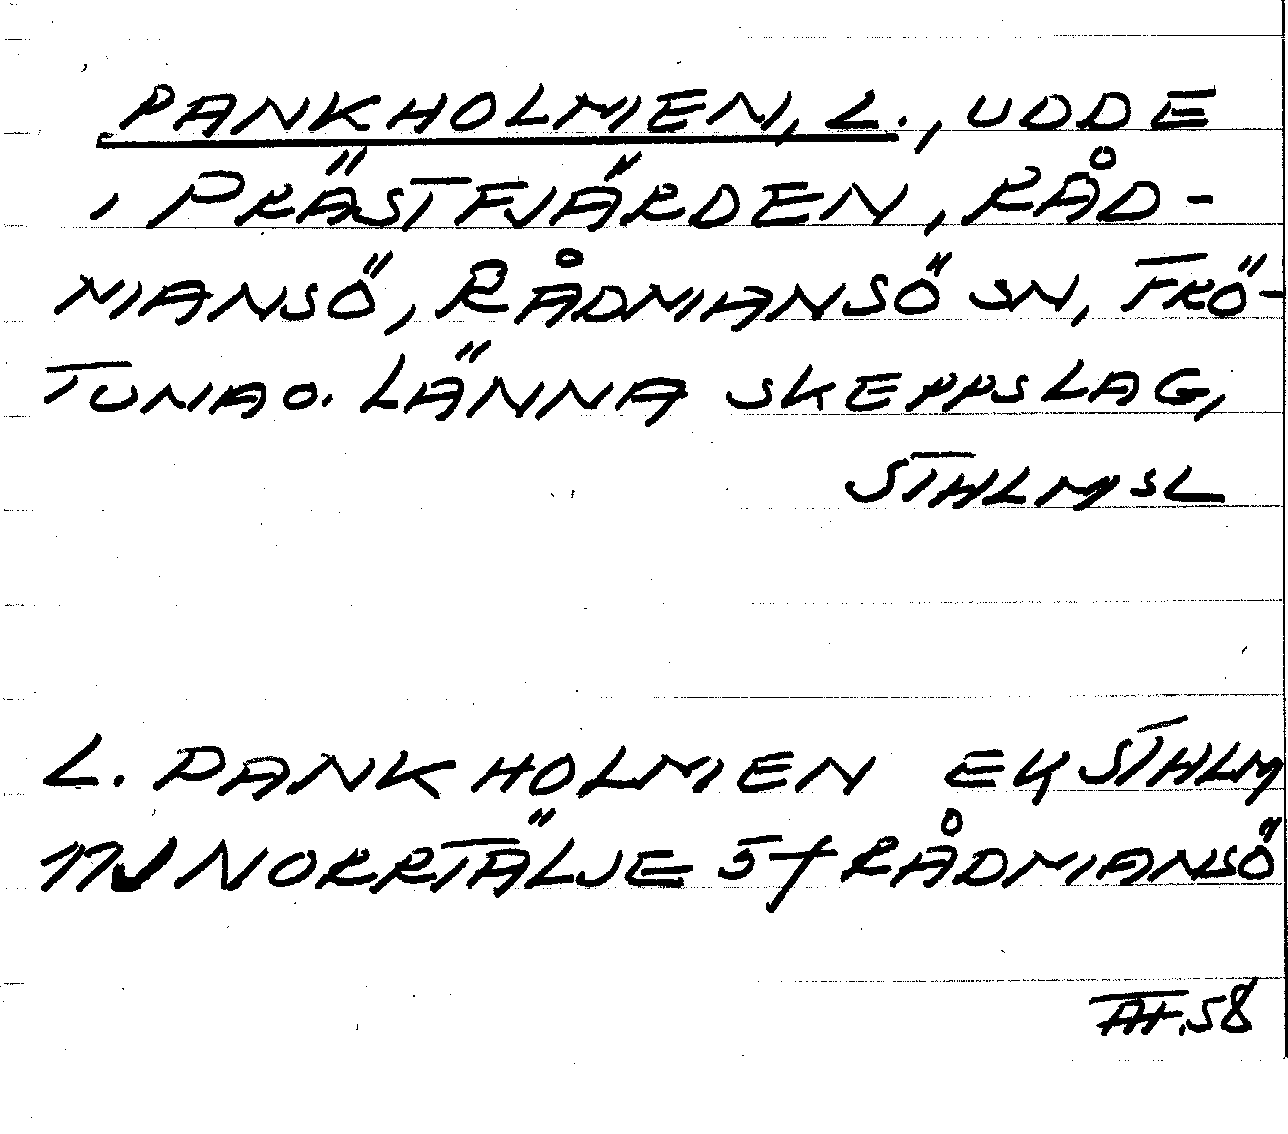 PANKHOLMEN, L., UDDE
I PRÄSTFJÄRDEN, RÅD-
MANSÖ, RÅDMANSÖ SN, FRÖ-
TUNA O. LÄNNA SKEPPSLAG,
STHLMSL
L. PANKHOLMEN EK STHLM
11J NORRTÄLJE 5f RÅDMANSÖ
58